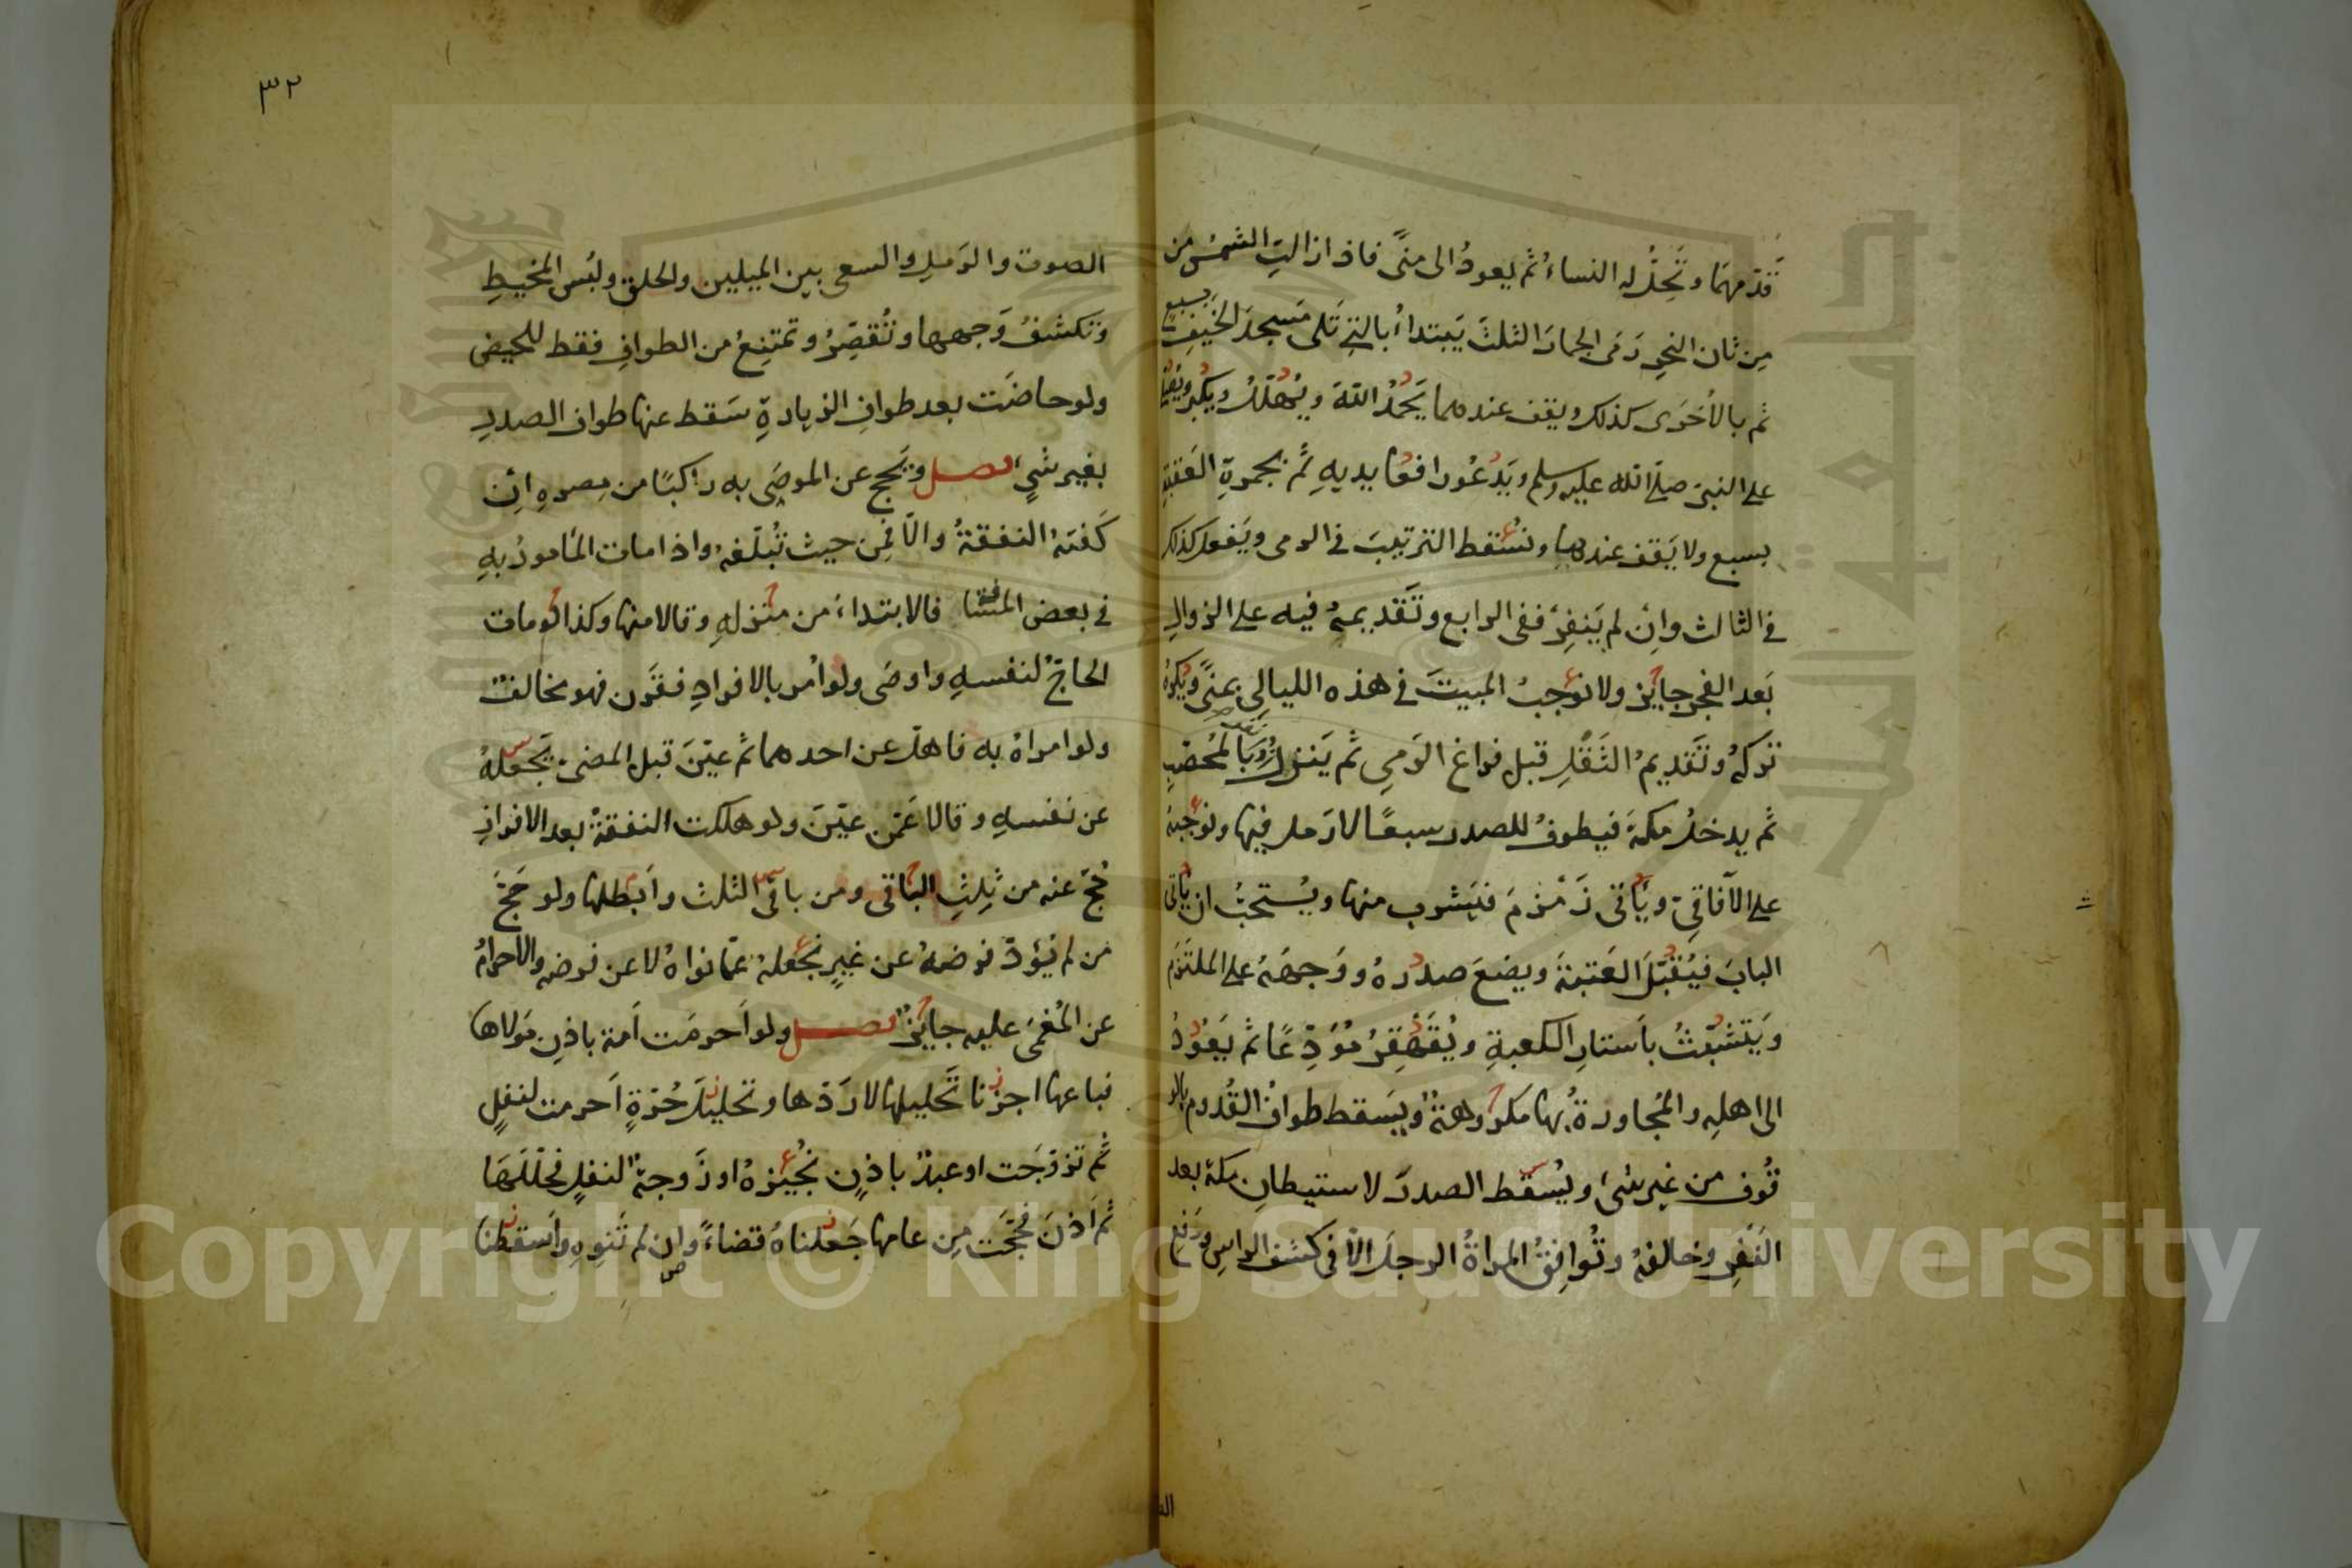 قدّمهما وتحلّ له النساءُ ثم يعودُ الى منًى فاذا زالتِ الشمسُ من
مِن ثان النحرِ رَمَى الجمارَ الثلثَ يَبتداُ بالتي تَلى مَسجدَ الخَيفِ بسبع
ثم بالأخرى كذلك ويقف عندهما يَحمَدُ اللهَ ويُهَلّلُ ويكبّرُ ويُصَلّى
على النبىّ صلى الله عليه وسلم ويَدعُو رافعًا يديهِ ثم بجمرةِ العَقَبةِ
بسبع ولا يَقف عندها ونُسْقط الترتيبَ فى الرمى ويَفعل كذلك
فى الثالث وإن لم يَنفِرْ ففى الرابع وتَقديمهُ فيه على الزوالِ
بَعد الفجر جايز ولا نوجبُ المبيتَ فى هذه الليالِى بمنًى ويُكرهُ
تركهُ وتَقديمُ الثَقَلِ قبل فراغ الرَمىِ ثم يَنزلُ بالمُحَصّبِ
ثم يدخلُ مكةَ فيطوفُ للصدر سبعًا لا رَمل فيها ونوجبه
على الآفاقىّ ويأتى زَمْزمَ فيَشرب منها ويُستحبّ ان يأتى
البابَ فيُقبّلَ العَتبةَ ويضعَ صدرهُ ووَجهَهُ على الملتَزم
ويَتشبّثُ بأستارِ الكعبةِ ويُقَهقِرُ مُوَدِّعًا ثم يَعُودُ
الى اهلِه والمُجاورةُ بها مكروهةٌ ويَسقط طوافُ القُدوم بالو
قُوف من غير شىء ويُسقط الصدرَ لاستيطانِ مكة بعد
النَفرِ وخالفهُ وتُوافِقُ المراةُ الرجلَ الّا فى كشف الراسِ ورَفعِ
٣٢
الصوت والرَملِ والسعى بين الميلين والحلق ولبُس المخيطِ
وتكشفُ وَجهها وتُقصّرُ وتمتنِعُ من الطوافِ فقط للحيض
ولو حاضَت بعد طوافِ الزيادةِ سَقط عنها طواف الصدرِ
بغير شىءٍ فصل ويُحج عن الموصَى به راكبًا من مِصرهِ إن
كَفَته النفقةُ والّا فمِن حيث تُبلّغهُ واذا مات المأمورُ به
فى بعض المسافة فالابتداءُ من منزلهِ وقالا منها وكذا لو مات
الحاجّ لنفسهِ واوصَى ولو أمر بالافرادِ فقَرَن فهو مخالفٌ
ولو امراهُ به فاهلّ عن احدهما ثم عيّنَ قبل المضىّ يَجعلهُ
عن نفسهِ وقالا عَمّن عيّنَ ولو هلكت النفقةُ بعد الافرازِ
حُجّ عنه من ثلثِ الباقى ومن باقى الثلث وأبطلها ولو حَجّ
من لم يُؤدّ فرضهُ عن غيرٍ نجعلهُ عمّا نواهُ لا عن فرضه والاحرامُ
عن المُغمَى عليه جايزٌ فصل ولو أحرمَت أمة باذنِ مَولاها
فباعها اجزنا تَحليلها لا ردّها وتحليلَ حُرّةٍ أحرمت لنفلٍ
ثم تزوّجَت او عبدٌ باذنٍ نُجيزهُ او زَوجةٌ لنفلٍ فحلّلَها
ثم أذنَ فحجّت مِن عامها جَعلناهُ قضاءً وإن لم تَنوِهِ وأسقطنا
Copyright © King Saud University